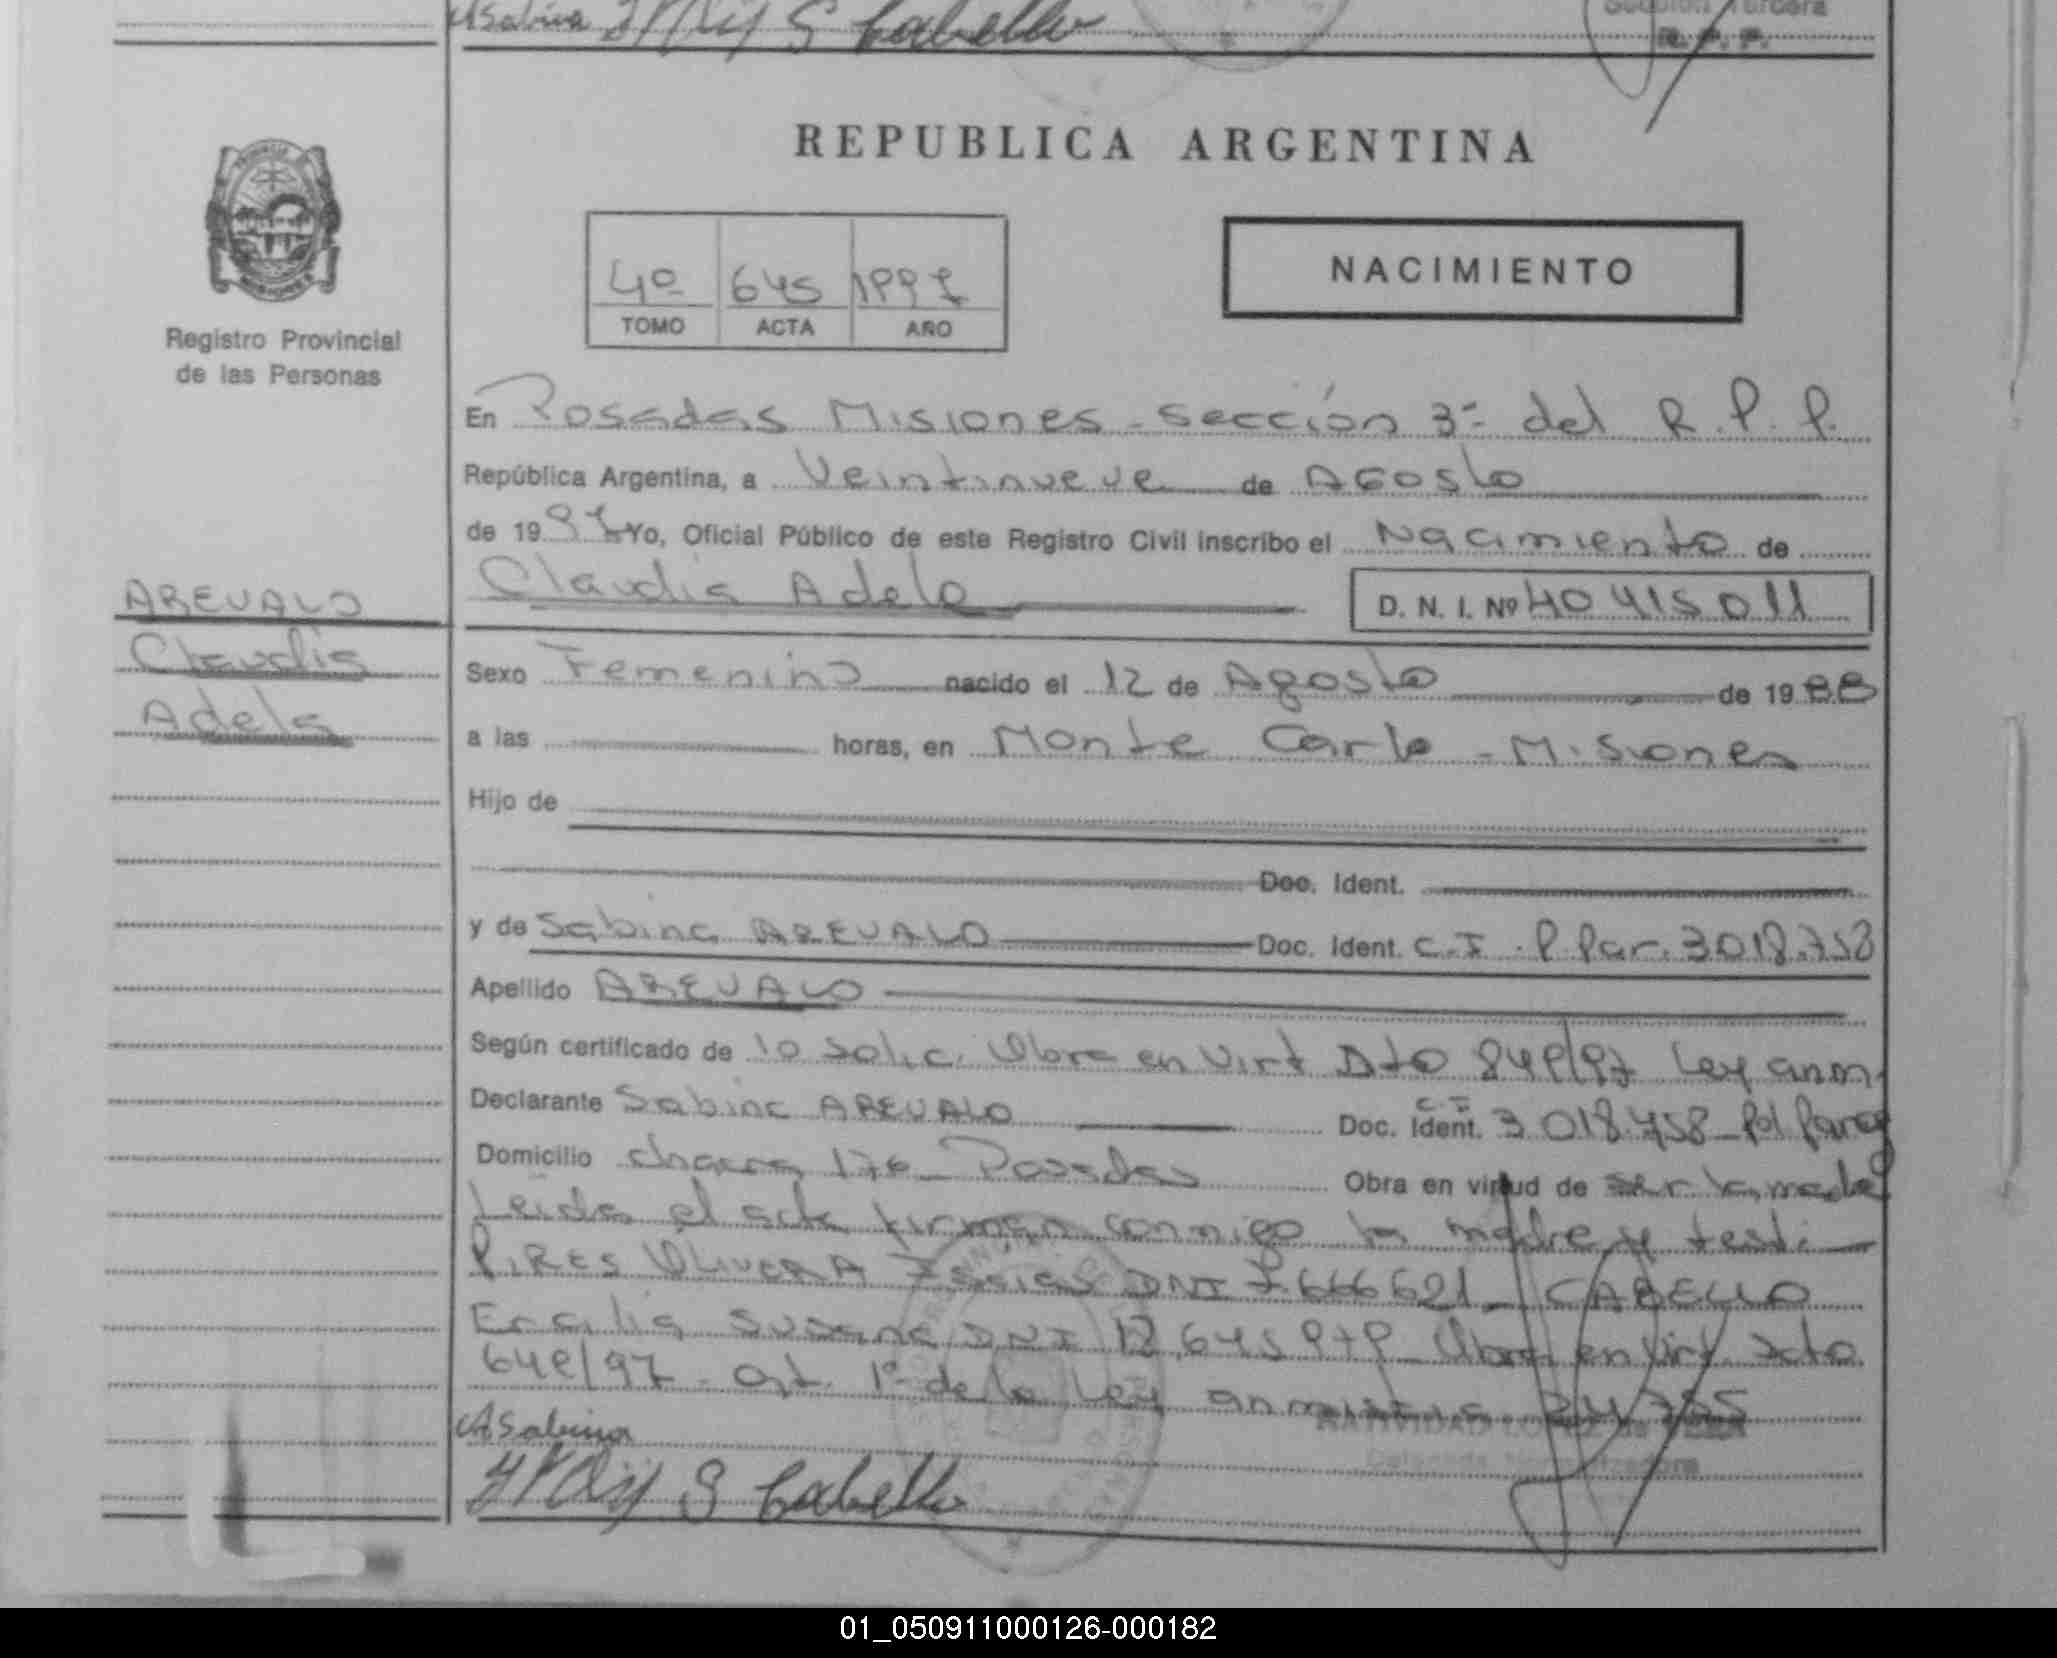 Asabina S Cabello
Sección Tercera
R. P. P.
REPUBLICA ARGENTINA
4º 645 1997
TOMO ACTA AÑO
NACIMIENTO
Registro Provincial
de las Personas
En Posadas Misiones - Sección 3ª del R. P. P.
República Argentina, a Veintinueve de Agosto
de 1997 Yo, Oficial Público de este Registro Civil inscribo el Nacimiento de
Claudia Adela D. N. I. Nº 40 415 011
AREVALO
Claudia
Adela
Sexo Femenino nacido el 12 de Agosto de 1988
a las horas, en Monte Carlo - Misiones
Hijo de
Doc. Ident.
y de Sabina AREVALO Doc. Ident. C.I. P. Par. 3018.758
Apellido AREVALO
Según certificado de lo solic. Obra en Virt Dto 849/97 Ley anm.
Declarante Sabina AREVALO Doc. Ident. C.I 3 018 758 - Pol Parag
Domicilio chacra 176 - Posadas Obra en virtud de ser la madre
Leida el acta firman conmigo la madre y testi
PIRES OLIVERA Isaias DNI 7.666621 - CABELLO
Ercilia Susana DNI 12.645 979 - Obra en Virt Dcto
649/97 - Art. 1º de la Ley anmistia 24755
Asabina
NATIVIDAD LOPEZ de
Delegada Normalizadora
S Cabello
01_050911000126-000182